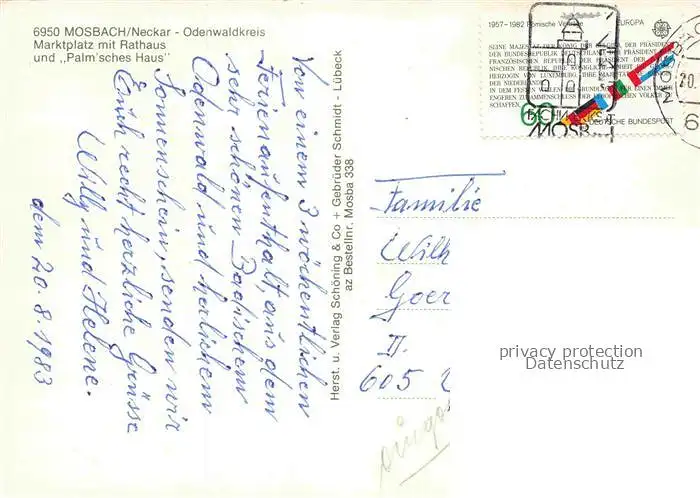 6950 MOSBACH/Neckar - Odenwaldkreis
Marktplatz mit Rathaus
und „Palm'sches Haus"
Von einem 3 wöchentlichen
Ferienaufenthalt, aus dem
sehr schönen Badischem
Odenwald und herlichem
Sonnenschein, senden wir
Euch recht herzliche Grüsse
Willy und Helene.
dem 20.8.1983
Herst. u. Verlag Schöning & Co + Gebrüder Schmidt - Lübeck
az Bestellnr. Mosba 338
1957-1982 Römische Verträge EUROPA
SEINE MAJESTÄT DER KÖNIG DER BELGIER, DER PRÄSIDENT
DER BUNDESREPUBLIK DEUTSCHLAND, DER PRÄSIDENT
FRANZÖSISCHEN REPUBLIK
NISCHEN REPUBLIK, IHRE KÖNIGLICHE HOHEIT
HERZOGIN VON LUXEMBURG, IHRE MAJESTÄT
DER NIEDERLANDE
ENGEREN ZUSAMMENSCHLUSS DER EUROPÄISCHEN VÖLKER
SCHAFFEN,
60
DEUTSCHE BUNDESPOST
MOSB
20.
6
Familie
Wilh
Goer
II.
605
privacy protection
Datenschutz